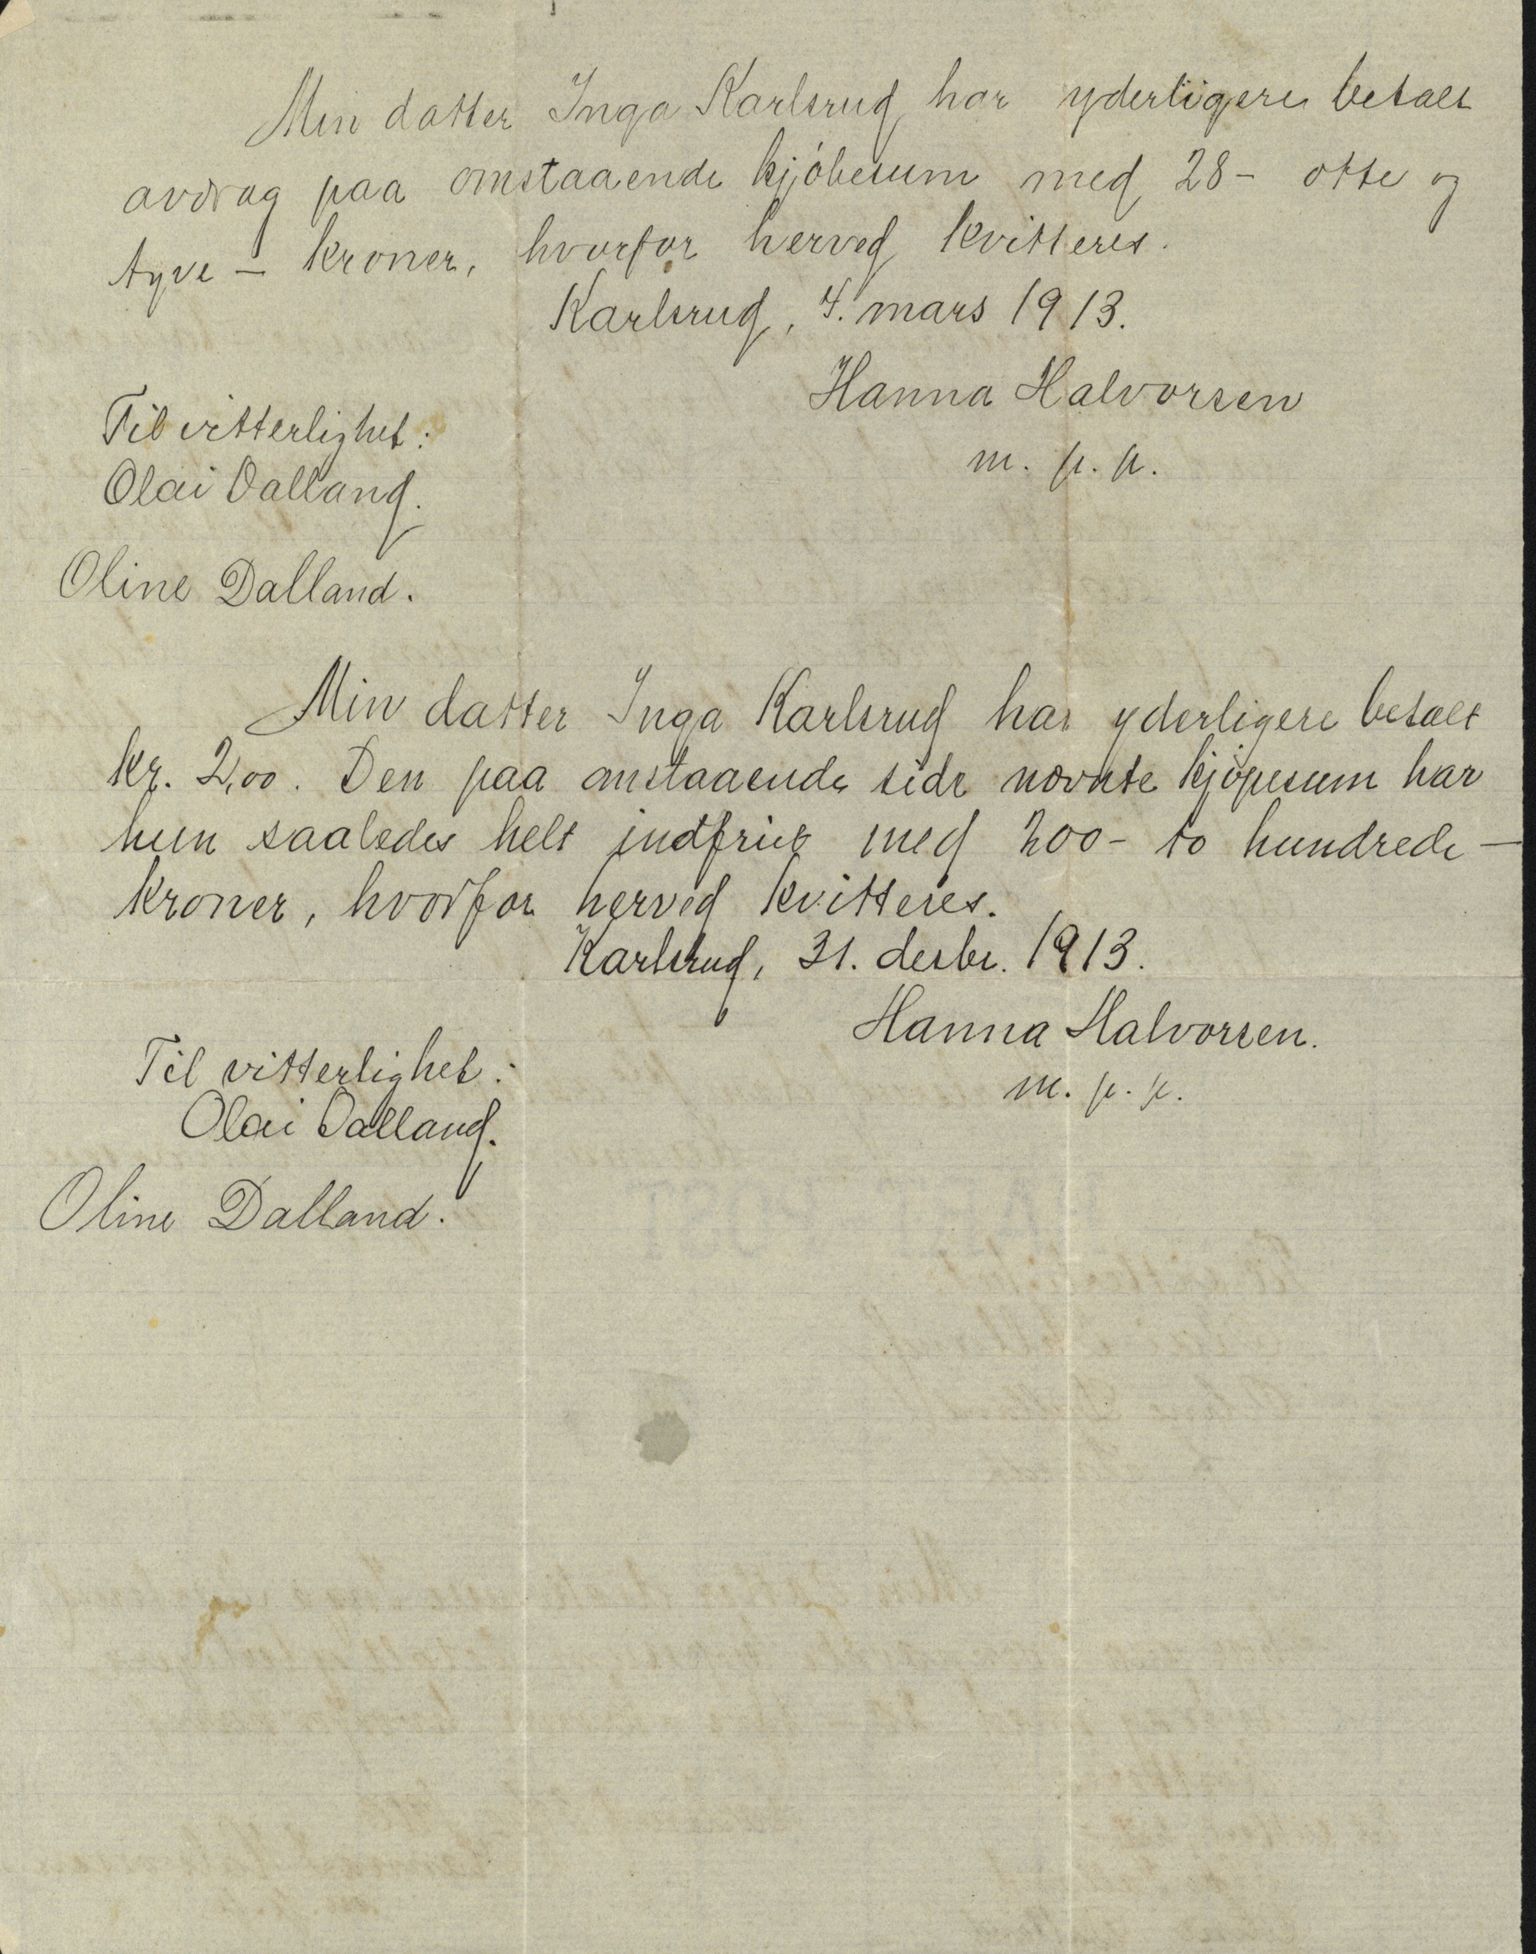 Min datter Inga Karlsrud har yderligere betalt
avdrag paa omstaaende kjøbesum med 28 - otte og
tyve - kroner, hvorfor herved kvitteres.
Karlsrud, 4. mars 1913.
Hanna Halvorsen
m. p. p.
Til vitterlighet:
Olai Dalland.
Oline Dalland.
Min datter Inga Karlsrud har yderligere betalt
kr. 2,00. Den paa omstaaende side nævnte kjøpesum har
hun saaledes helt indfriet med 200 - to hundrede -
kroner, hvorfor herved kvitteres.
Karlsrud, 31. desbr. 1913.
Hanna Halvorsen.
m. p. p.
Til vitterlighet:
Olai Dalland.
Oline Dalland.